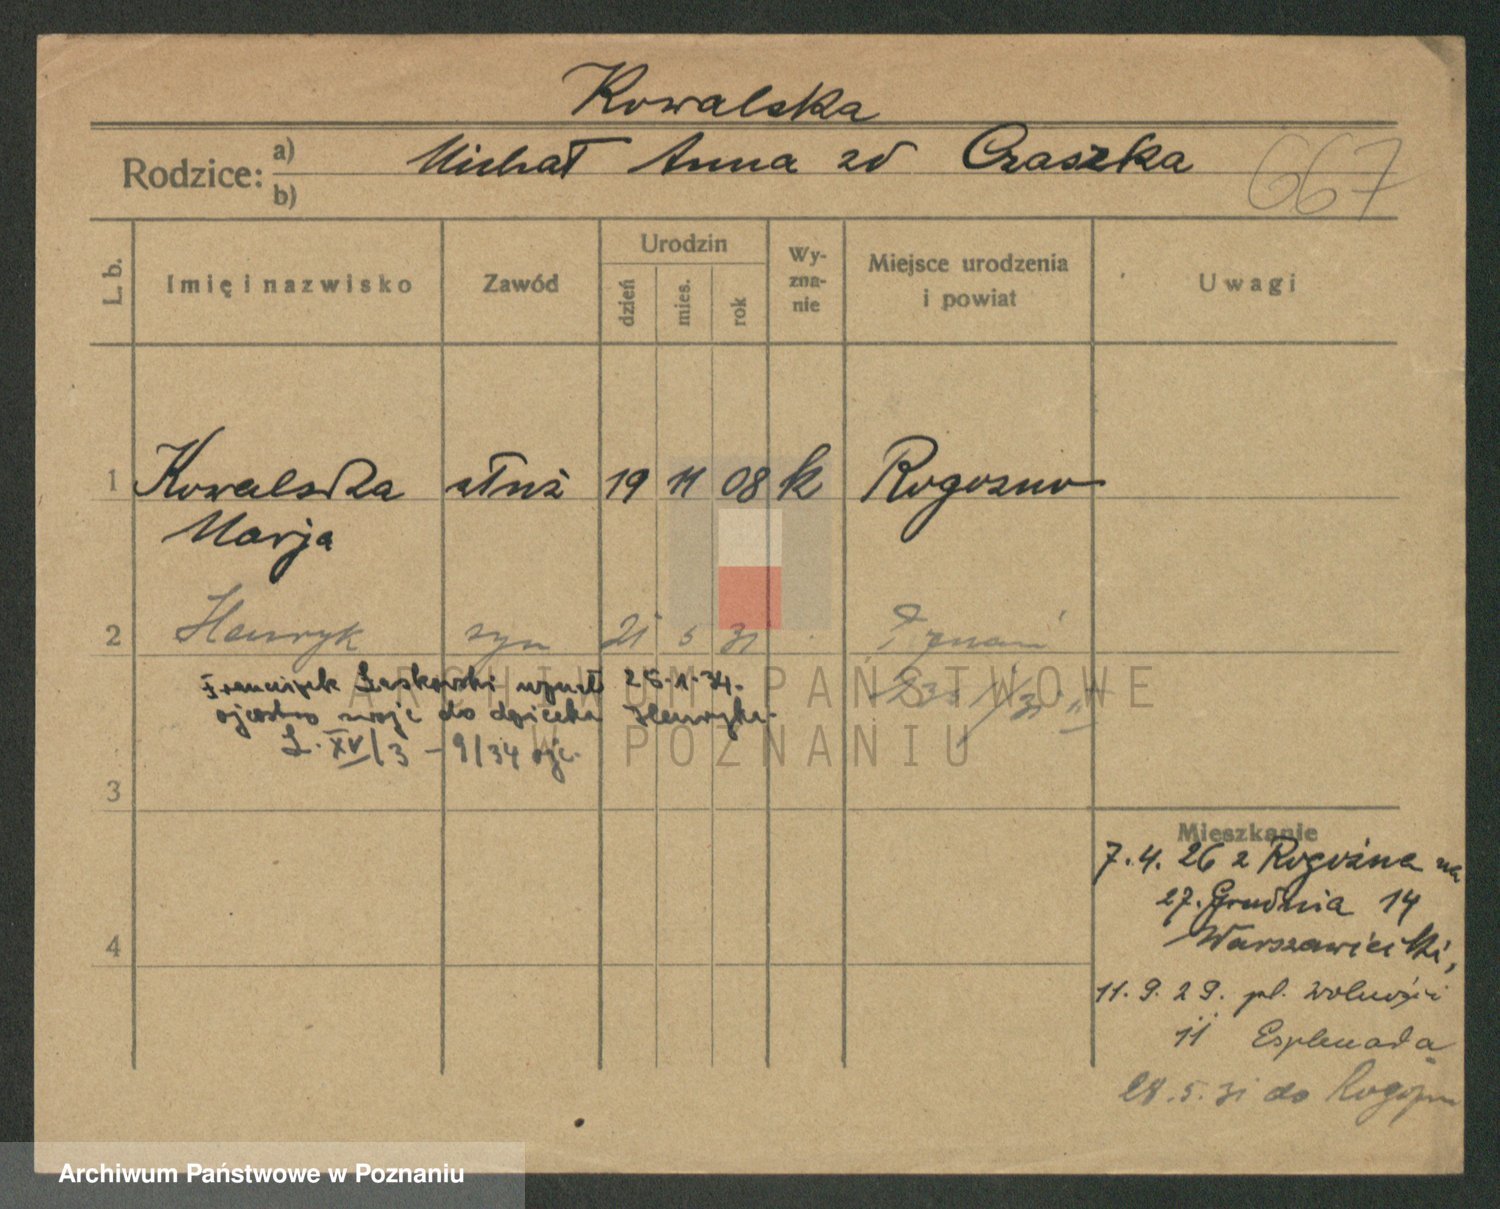 Kowalska
Rodzice: a) Michał Anna zd Czaszka
b)
667
L. b.
Imię i nazwisko
Zawód
Urodzin
dzień
mies.
rok
Wy-
zna-
nie
Miejsce urodzenia
i powiat
Uwagi
1 Kowalska służ 19 11 08 k Rogozno
Marja
2 Henryk syn 21 5 31 Poznań
Franciszek Laskowski uznał 25.1.34.
ojcostwo swoje do dziecka Henryka.
L. XV/3 – 9/34 ojc.
3
4
Mieszkanie
7.4.26 z Rogoźna na
27. Grudnia 14
Warszawicki,
11.9.29. pl. Wolności
11 Esplanada
28.5.31 do Rogozna
ARCHIWUM PAŃSTWOWE
W POZNANIU
Archiwum Państwowe w Poznaniu